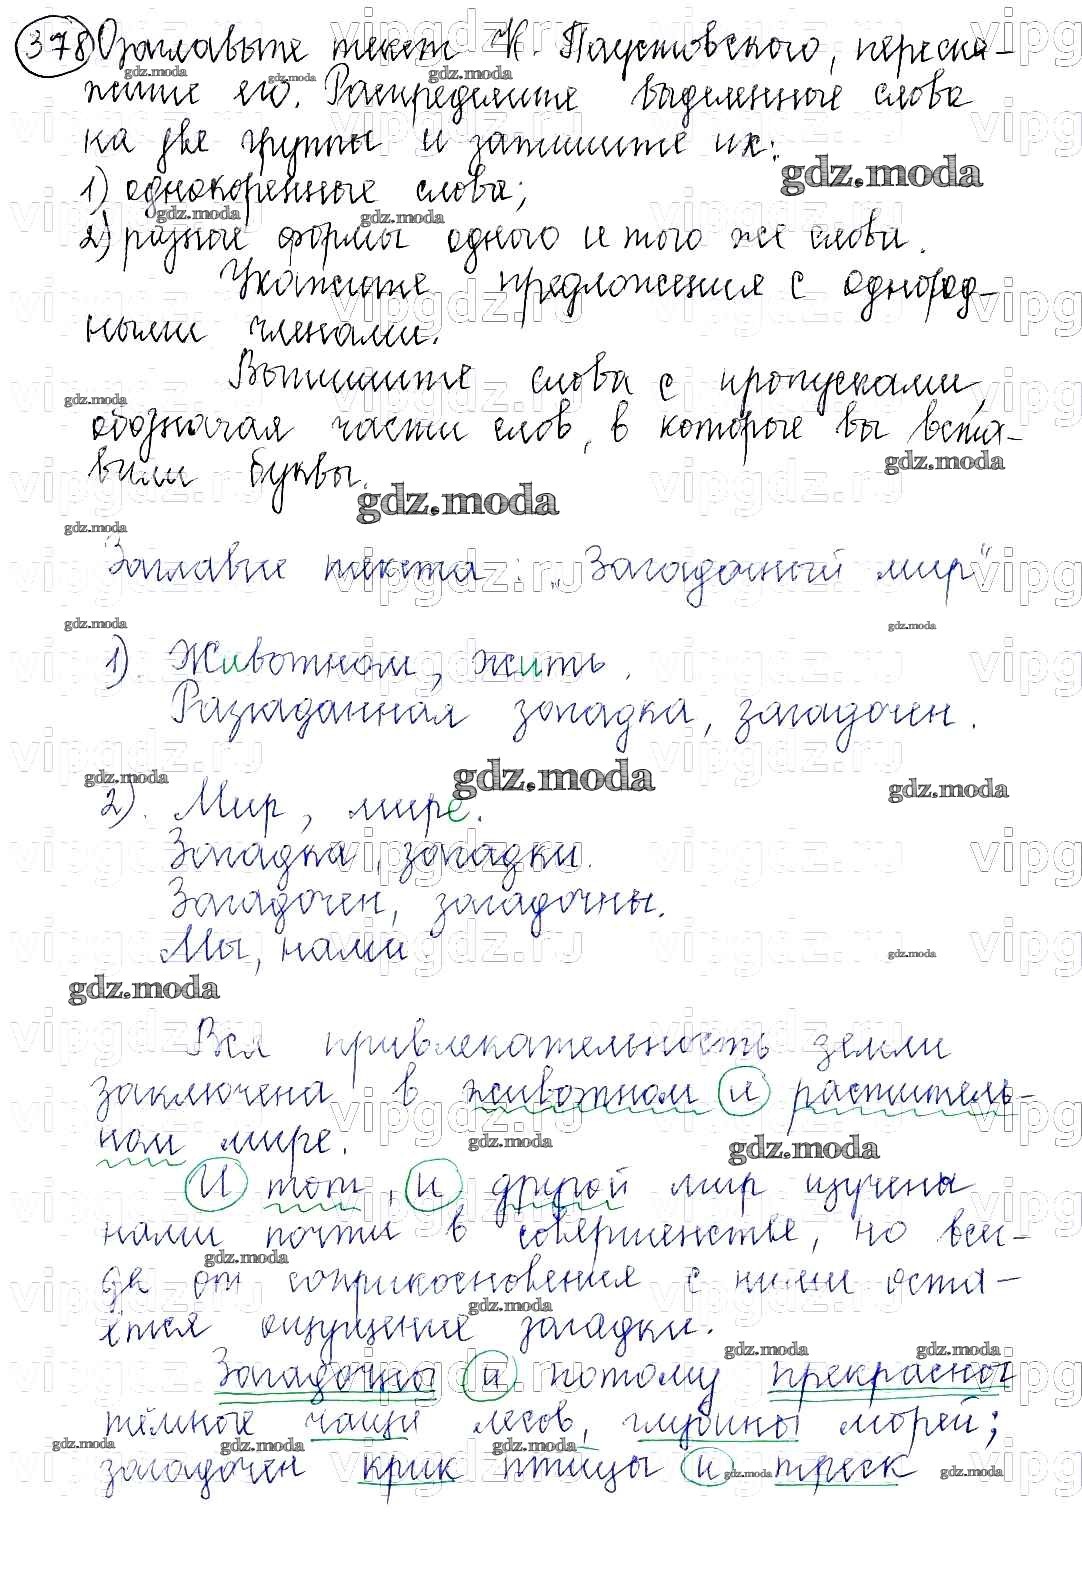 378 Озаглавьте текст К. Паустовского, переска-
жите его. Распределите выделенные слова
на две группы и запишите их:
1) однокоренные слова;
2) разные формы одного и того же слова.
Укажите предложения с однород-
ными членами.
Выпишите слова с пропусками,
обозначая части слов, в которые вы вста-
вили буквы.
Заглавие текста: „Загадочный мир"
1). Животном, жить.
Разгаданная загадка, загадочен.
2). Мир, мире.
Загадка, загадки.
Загадочен, загадочны.
Мы, нами
Вся привлекательность земли
заключена в животном и раститель-
ном мире.
И тот, и другой мир изучены
нами почти в совершенстве, но все-
гда от соприкосновения с ними оста-
ётся ощущение загадки.
Загадочны и потому прекрасны
тёмные чащи лесов, глубины морей;
загадочен крик птицы и треск
gdz.moda
vipgdz.ru